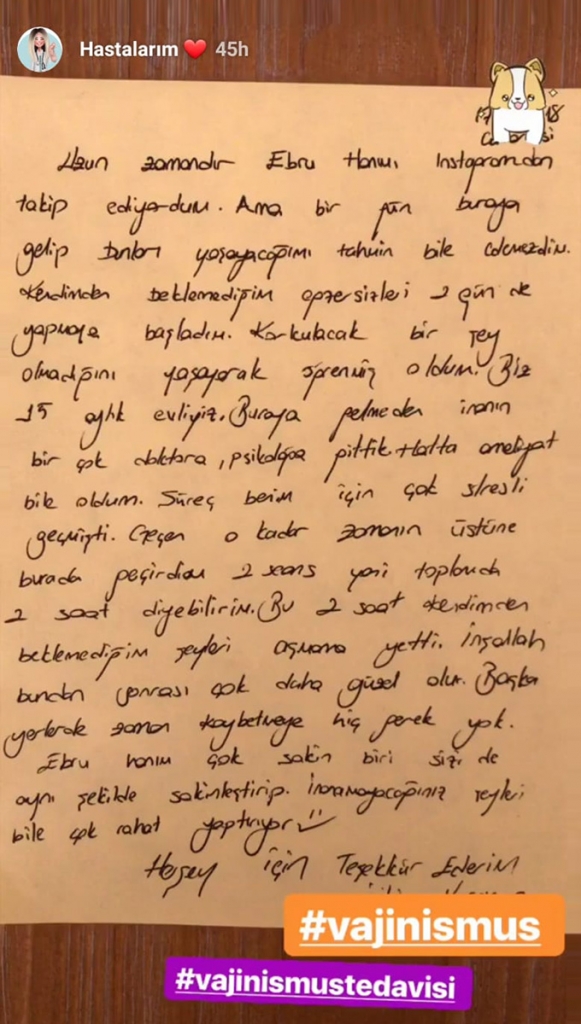 Hastalarım ❤️ 45h
Uzun zamandır Ebru Hanımı Instagramdan
takip ediyordum. Ama bir gün buraya
gelip bunları yaşayacağımı tahmin bile edemezdim.
Kendimden beklemediğim egzersizleri 2 gün de
yapmaya başladım. Korkulacak bir şey
olmadığını yaşayarak öğrenmiş oldum. Biz
15 aylık evliyiz. Buraya gelmeden inanın
bir çok doktora, psikoloğa gittik. Hatta ameliyat
bile oldum. Süreç benim için çok stresli
geçmişti. Geçen o kadar zamanın üstüne
burada geçirdiğim 2 seans yani toplamda
2 saat diyebilirim. Bu 2 saat kendimden
beklemediğim şeyleri aşmama yetti. İnşallah
bundan sonrası çok daha güzel olur. Başka
yerlerde zaman kaybetmeye hiç gerek yok.
Ebru hanım çok sakin biri sizi de
aynı şekilde sakinleştirip. İnanamayacağınız şeyleri
bile çok rahat yaptırıyor
Herşey için Teşekkür Ederim
#vajinismus
#vajinismustedavisi